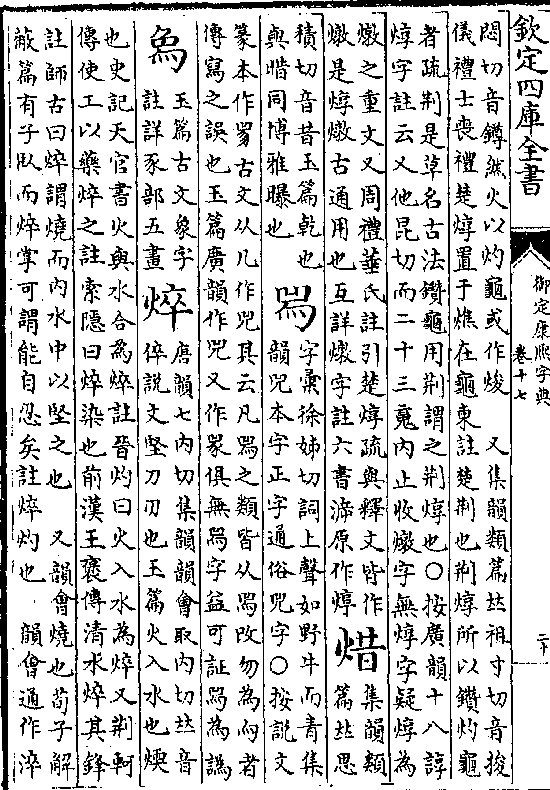 欽定四庫全書
御定康熙字典
卷十七
二十
悶切音鐏然火以灼龜或作焌　又集韻類篇𠀤祖寸切音捘
儀禮士喪禮楚焞置于燋在龜東註楚荆也荆焞所以鑽灼龜
者疏荆是草名古法鑽龜用荆謂之荆焞也○按廣韻十八諄
焞字註云又他昆切而二十三䰟内止收燉字無焞字疑焞為
燉之重文又周禮華氏註引楚焞疏與釋文皆作
燉是焞燉古通用也互詳爟字註六書溯原作㷟
焟
集韻類
篇𠀤思
積切音昔玉篇乾也
與㫺同博雅曝也
𤉡
字彙徐姊切詞上聲如野牛而青集
韻兕本字正字通俗兕字○按説文
篆本作𤉡古文从儿作兕其云凡𤉡之類皆从𤉡改勿為㣇者
傳寫之誤也玉篇廣韻作兕又作㒸俱無𤉡字益可証𤉡為譌
𤉢
玉篇古文象字
註詳豕部五畫
焠
唐韻七内切集韻韻會取内切𠀤音
倅説文堅刀刃也玉篇火入水也㷄
也史記天官書火與水合為焠註晉灼曰火入水為焠又荆軻
傳使工以藥焠之註索隱曰焠染也前漢王褒傳清水焠其鋒
註師古曰焠謂燒而内水中以堅之也　又韻會燒也荀子解
蔽篇有子臥而焠掌可謂能自忍矣註焠灼也　韻會通作淬